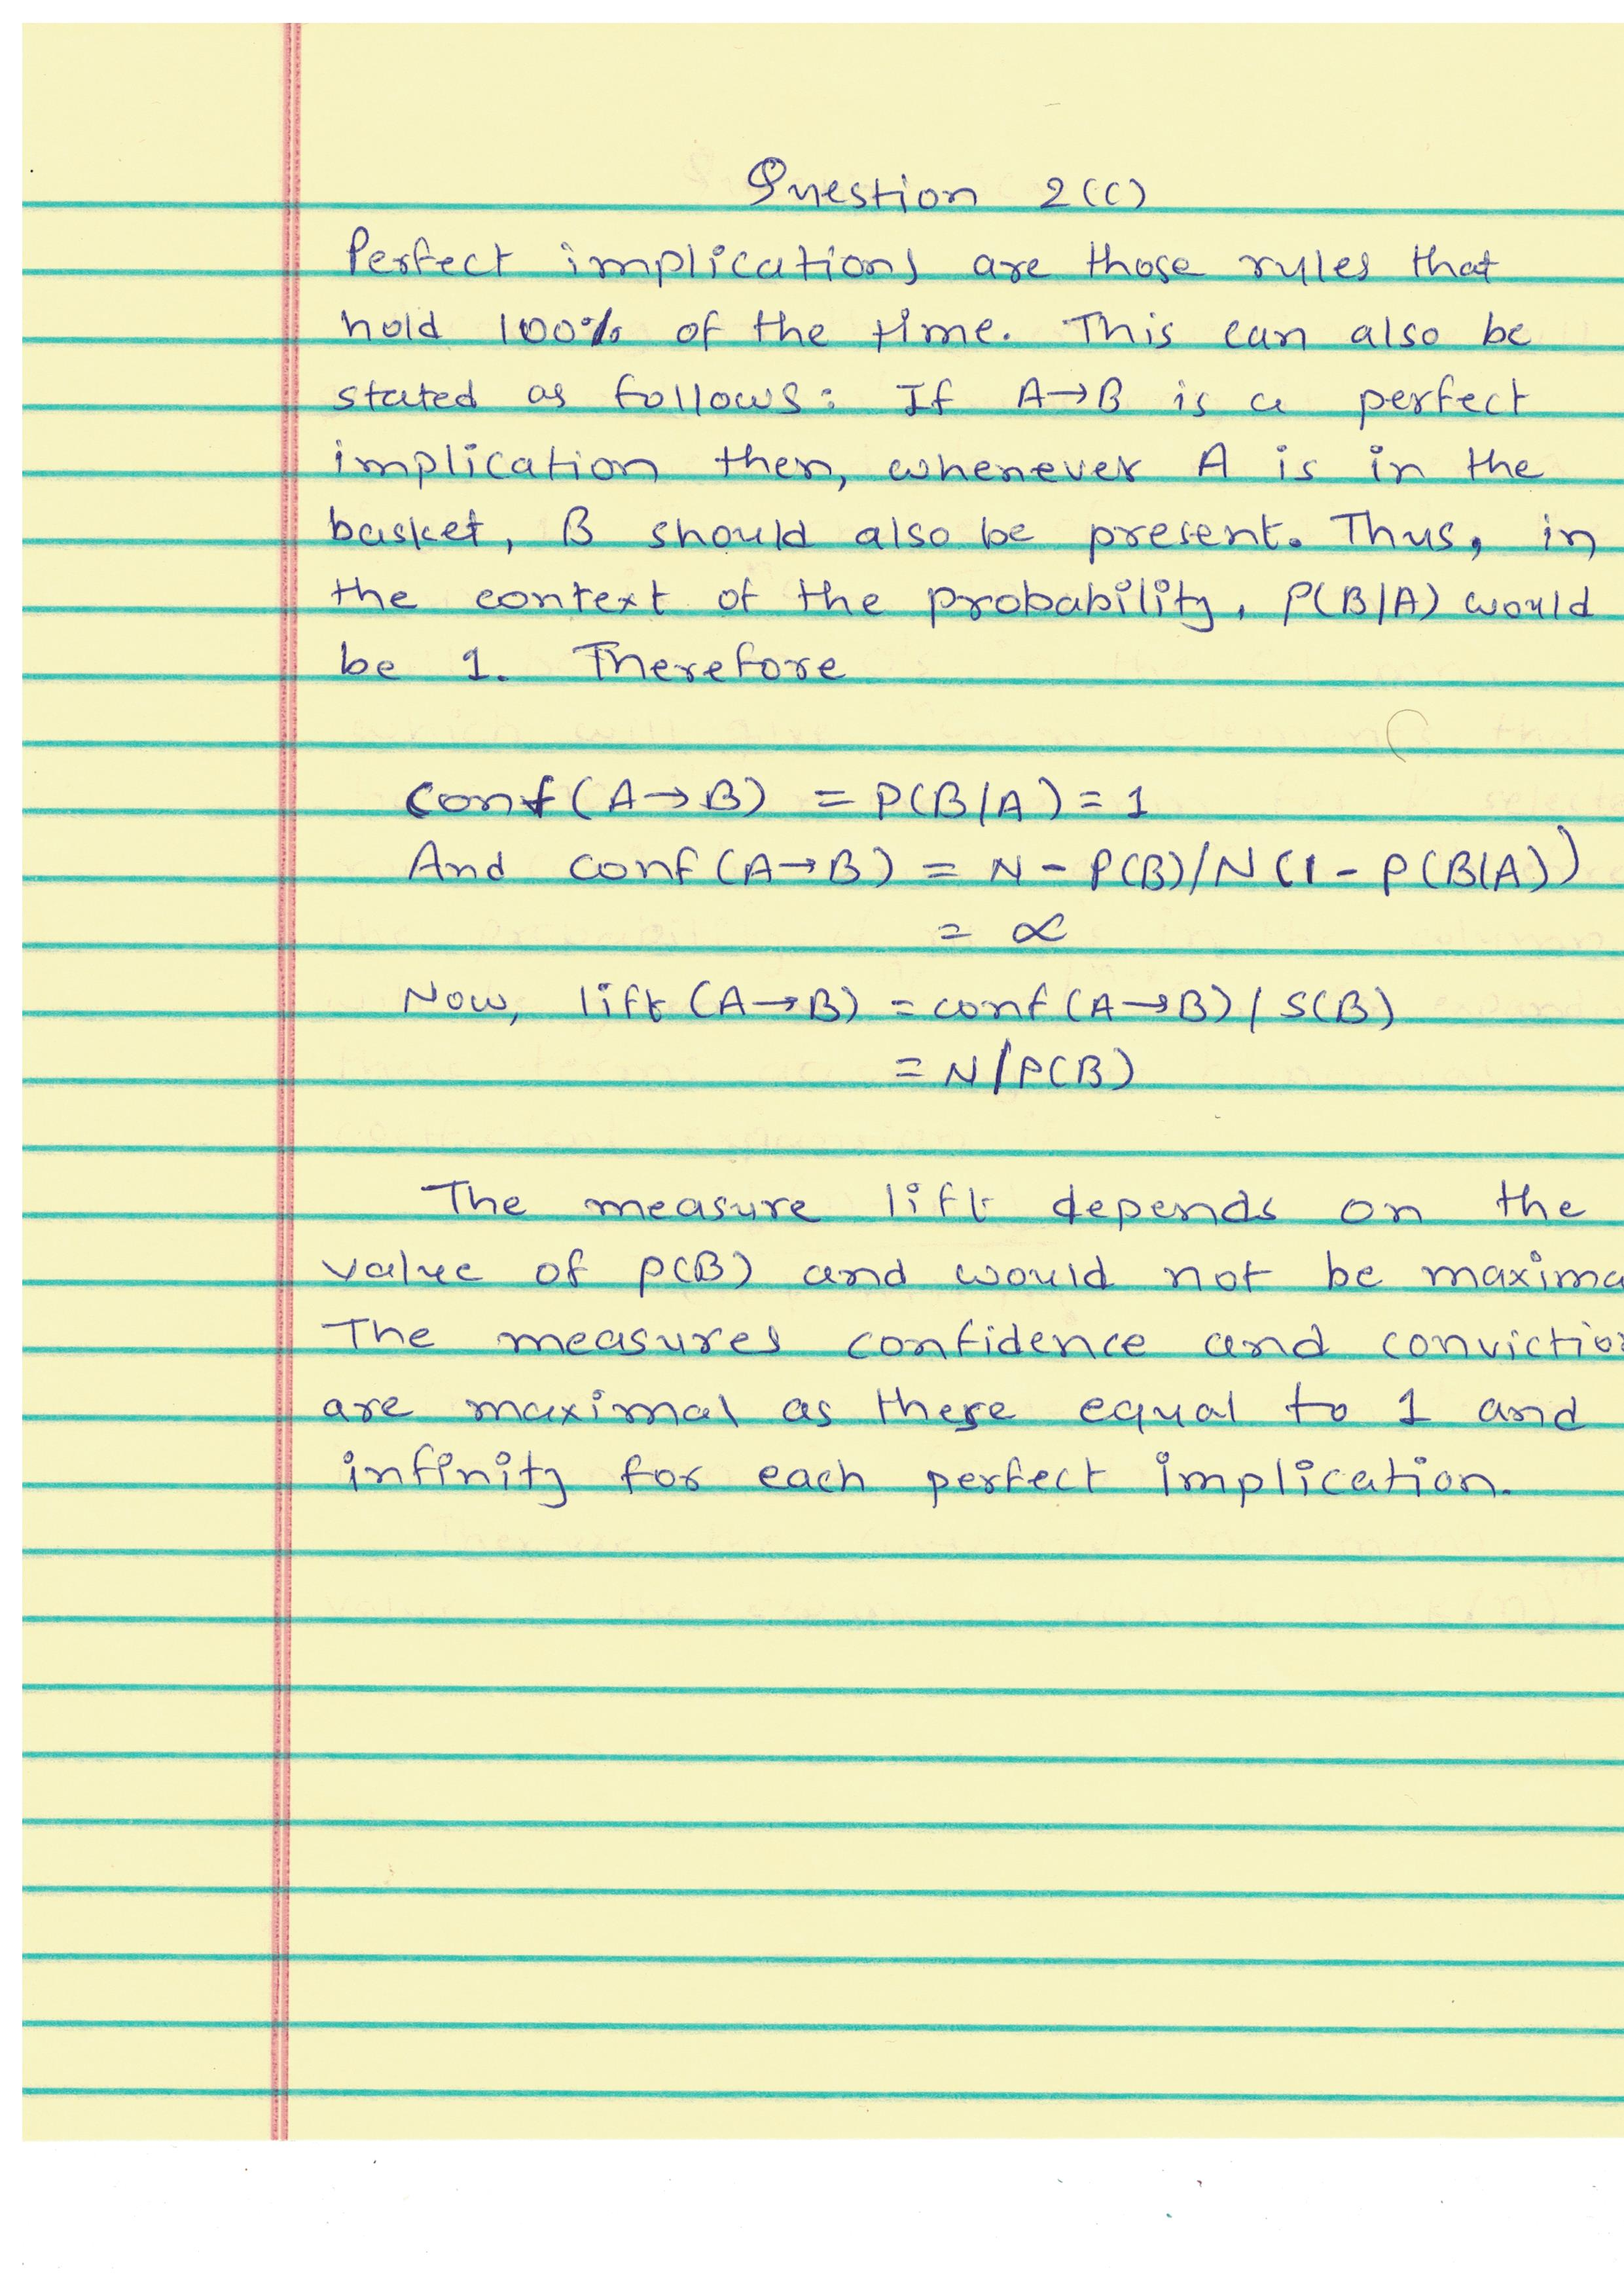 Question 2(c)
Perfect implications are those rules that
hold 100% of the time. This can also be
stated as follows: If A→B is a perfect
implication then, whenever A is in the
basket, B should also be present. Thus, in
the context of the probability, P(B|A) would
be 1. Therefore
Conf(A→B) = P(B|A) = 1
And conf(A→B) = N - P(B)/N(1 - P(B|A))
= ∝
Now, lift(A→B) = conf(A→B) / S(B)
= N/P(B)
The measure lift depends on the
value of P(B) and would not be maxima
The measures confidence and convictio
are maximal as these equal to 1 and
infinity for each perfect implication.